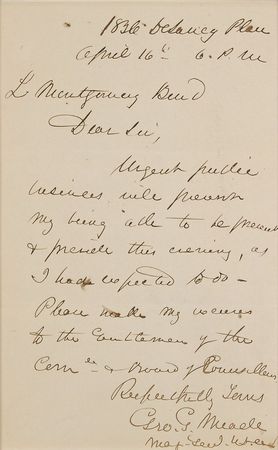 1836 Delancey Place
April 16th 6. P.M
L Montgomery Bond
Dear Sir,
Urgent public
business will prevent
my being able to be present
& preside this evening, as
I had expected to do –
Please make my excuses
to the Gentlemen of the
Comee & Board of Counsellors
Respectfully Yours
Geo. G. Meade
Maj. Genl. U.S.A